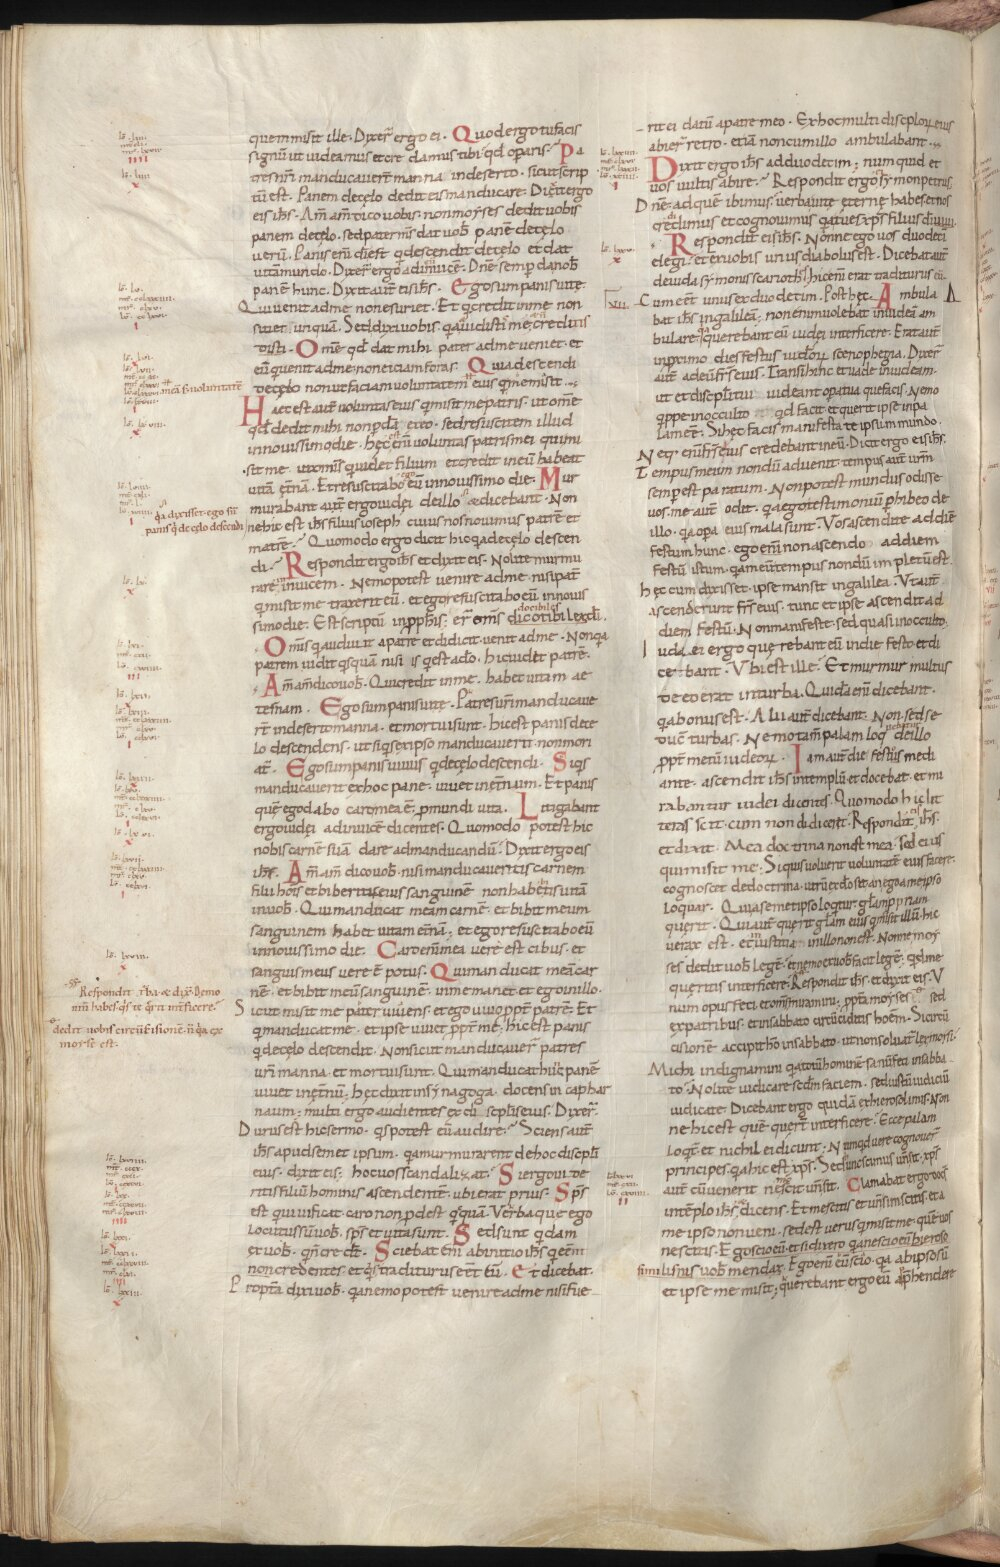 quem misit ille. Dixer̄ ergo ei. Quod ergo tu facis
signū ut uideamus et credamus tibi. qd operaris. Pa
tres nr̄i manducauer̄t manna indeserto. sicut scrip
tū est. Panem de cęlo dedit eis manducare. Dicit ergo
eis ih̄s. Am̄ am̄ dico uobis. non moyses dedit uobis
panem de cęlo. sed pater m̄s dat uob̄ panē de cęlo
uerū. Panis enī di est q̄ descendit de cęlo et dat
uitā mundo. Dixer̄ ergo ad eū. Dn̄e semp̄ da nob̄
panē hunc. Dixit aut̄ eis ih̄s. Ego sum panis uitę.
Qui uenit ad me non esuriet. Et q̄ credit in me non
sitiet unquā. Sed dixi uobis q̄a uidistis me, et n̄ credi
distis. Om̄e qd̄ dat mihi pater ad me ueniet. et
eū qui uenit ad me non eiciam foras. Quia descendi
de cęlo non ut faciam uoluntatem eius q̄ me misit.
Haec est aut̄ uoluntas eius q̄ misit me patris. ut om̄e
qd̄ dedit mihi non pdā ex eo. sed resuscitem illud
in nouissimo die. Hęc est enī uoluntas patris mei qui mi
sit me. ut om̄is qui uidet filium et credit in eū habeat
uitā ęt̄nā. Et resuscitabo eū in nouissimo die. Mur
murabant aut̄ ergo iudei de illo & dicebant. Non
ne hic est ih̄s filius ioseph cuius nos nouimus patrē et
matrē. Quomodo ergo dicit hic q̄a de cęlo descen
di. Respondit ergo ih̄s et dixit eis. Nolite murmu
rare inuicem. Nemo potest uenire ad me nisi pat̄
q̄ misit me traxerit eū. et ego resuscitabo eū in nouis
simo die. Est scriptū in pph̄is. er̄ om̄s docibiles di
Om̄is q̄ audiuit a patre et didicit uenit ad me. Non q̄a
patrem uidit q̄squā nisi is q̄ est a do. hic uidet patrē.
Am̄ am̄ dico uob̄. Qui credit in me. habet uitam ae
ternam. Ego sum panis uitę. Patres ur̄i manducaue
rt̄ in deserto manna. et mortui sunt. Hic est panis de cę
lo descendens. ut si q̄s ex ipso manducauerit non mori
at̄. Ego sum panis uiuus q̄ de cęlo descendi. Si q̄s
manducauerit ex hoc pane. uiuet in ęt̄num. Et panis
quē ego dabo caro mea ē. p mundi uita. Litigabant
ergo iudei ad inuicē dicentes. Quomodo potest hic
nobis carnē suā dare ad manducandū. Dixit ergo eis
ih̄s. Am̄ am̄ dico uob̄. nisi manducaueritis carnem
filii hoīs et biberitis eius sanguinē non habetis uitā
in uob̄. Qui manducat meam carnē. et bibit meum
sanguinem habet uitam et̄nā. et ego resuscitabo eū
in nouissimo die. Caro enī mea uere est cibus. et
sanguis meus uere ē potus. Qui manducat meā car
nē. et bibit meū sanguinē. in me manet et ego in illo.
Sicut misit me pater uiuens. et ego uiuo ppt̄ patrē. Et
q̄ manducat me. et ipse uiuet ppt̄ me. hic est panis
q̄ de cęlo descendit. Non sicut manducauer̄ patres
ur̄i manna et mortui sunt. Qui manducat hūc panē
uiuet in ęt̄nū. hęc dixit in synagoga. docens in caphar
naum. multi ergo audientes ex discipl̄is eius. Dixer̄.
Durus est hic sermo. q̄s potest eū audire. Sciens aut̄
ih̄s apud semet ipsum. q̄a murmurarent de hoc discipl̄i
eius. dixit eis. hoc uos scandalizat. Si ergo uide
ritis filiū hominis ascendentē ubi erat prius. Sps̄
est qui uiuificat. caro non pdest q̄quā. Verba que ego
locutus sū uob̄. sps̄ et uita sunt. Sed sunt q̄dam
ex uob̄. q̄ n̄ cred̄t. Sciebat enī ab initio ih̄s q̄ eēnt
non credentes. et q̄s traditurus eēt eū. Et dicebat.
Propt̄a dixi uob̄. q̄a nemo potest uenire ad me nisi fue
rit ei datū a patre meo. Ex hoc multi discplor̄ eius
abier̄ retro. et iā non cum illo ambulabant.
Dixit ergo ih̄s ad duodecim; numquid et
uos uultis abire. Respondit ergo symon petrus.
Dn̄e ad quē ibimus. uerba uitę ęternę habes et nos
credimus et cognouimus q̄a tu es xp̄s filius di uiui.
Respondit eis ih̄s. Nonne ego uos duodeci
elegi. et ex uobis unus diabolus est. Dicebat aut̄
de iuda symonis scarioth. hic enī erat traditurus eū.
Cum eēt unus ex duodecim. Post hęc. Ambula
bat ih̄s in galileā. non enim uolebat in iudeā am
bulare. q̄a querebant eū iudei interficere. Erat aut̄
in primo dies festus iudeor̄ scenophegia. Dixer̄
aut̄ ad eū fr̄s eius. Transi hinc et uade in iudeam.
ut et discpl̄i tui uideant opa tua que facis. Nemo
q̄ppe in occulto qd̄ facit et querit ipse in pa
lam eē. Si hęc facis manifesta te ipsum mundo.
Neq̄. enī fr̄s eius credebant in eū. Dicit ergo eis ih̄s.
Tempus meum nondū aduenit. tempus aut̄ ur̄m
semp est paratum. Non potest mundus odisse
uos. me aut̄ odit. q̄a ego testimoniū phibeo de
illo. q̄a opa eius mala sunt. Vos ascendite ad diē
festum hunc. ego enī non ascendo ad diem
festū istum. q̄a meū tempus nondū impletū est.
Hęc cum dixisset. ipse mansit in galilea. Vt aut̄
ascenderunt fr̄s eius. tunc et ipse ascendit ad
diem festū. Non manifeste. sed quasi in occulto.
Iudaei ergo querebant eū in die festo et di
cebant. Vbi est ille. Et murmur multus
de eo erat in turba. Quidā enī dicebant.
q̄a bonus est. Alii aut̄ dicebant. Non. sed se
ducit turbas. Nemo tam̄ palam loq̄ de illo
ppt̄ metū iudeor̄. Iam aut̄ die festus medi
ante. ascendit ih̄s in templū et docebat. et mi
rabantur iudei dicentes. Quomodo hic lit
teras scit. cum non didicerit. Respondit ih̄s.
et dixit. Mea doctrina non est mea. sed eius
qui misit me. Si quis uoluerit uoluntatē eius facere.
cognoscet de doctrina. utrū ex do sit an ego a me ipso
loquar. Qui a semetipso loq̄tur gl̄am ppriam
querit. Qui aut̄ querit gl̄am eius q̄ misit illū. hic
uerax est. et iniusticia in illo non est. Nonne moy
ses dedit uob̄ legē. et nemo ex uob̄ facit legē. q̄d me
queritis interficere. Respondit ih̄s. et dixit eis. V
num opus feci. et om̄s miramini. ppt̄a moyses sed
ex patribus. et in sabbato circūciditis hoēm. Si circū
cisionē accipit hō in sabbato. ut non soluat̄ lex moysi.
Michi indignamini q̄a totū hominē sanū feci in sabba
to. Nolite iudicare sed̄m faciem. sed iustū iudiciū
iudicate. Dicebant ergo quidā ex hierosolimis. Non
ne hic est quē quer̄t interficere. Ecce palam
Loq̄t̄. et nichil ei dicunt. Numq̄d uere cognouer̄
principes. q̄a hic est xp̄s. Sed hunc scimus un̄ sit. xp̄s
aut̄ cū uenerit nescit un̄ sit. Clamabat ergo doc̄s
in tēplo ih̄s dicens. Et me scitis et un̄ sim scitis. et a
me ipso non ueni. sed est uerus q̄ misit me. quē uos
nescitis. Ego scio eū. et si dixero q̄a nescio eū. ero
similis uris uob̄ mendax. Ego enī eū scio. q̄a ab ipso sū
et ipse me misit; querebant ergo eū apphendere
meā s; uoluntatē
q̄a dixisset. ego sū
panis q̄ de cęlo descendi
Respondit t̄ba & dix̄. Demo
niū habes. q̄s te q̄rit int̄ficere.
dedit uobis circūcisionē. n̄ q̄a ex
moyse est.